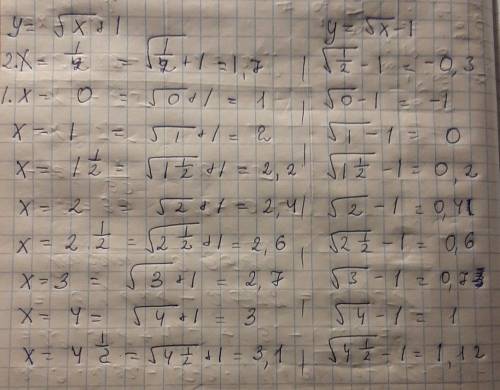 y = √x + 1 y = √x - 1
2. x = 1/2 = √1/2 + 1 = 1,7 | √1/2 - 1 = -0,3
1. x = 0 = √0 + 1 = 1 | √0 - 1 = -1
x = 1 = √1 + 1 = 2 | √1 - 1 = 0
x = 1 1/2 = √1 1/2 + 1 = 2,2 | √1 1/2 - 1 = 0,2
x = 2 = √2 + 1 = 2,41 √2 - 1 = 0,41
x = 2 1/2 = √2 1/2 + 1 = 2,6 | √2 1/2 - 1 = 0,6
x = 3 = √3 + 1 = 2,7 | √3 - 1 = 0,73
x = 4 = √4 + 1 = 3 | √4 - 1 = 1
x = 4 1/2 = √4 1/2 + 1 = 3,1 | √4 1/2 - 1 = 1,12